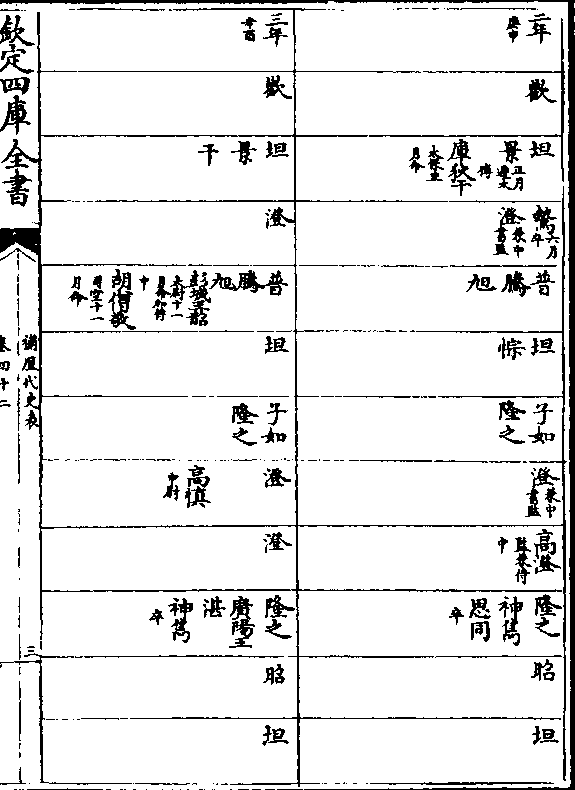 二年 庚申
歡
坦
景 正月遷太傅
庫狄干 太保五月命
鷙 六月卒
澄 兼中書監
普
騰
旭
坦
悰
子如
隆之
澄 兼中書監
高澄 監兼侍中
隆之
神儁
思同 卒
昭
坦
三年 辛酉
歡
坦
景
干
澄
普
騰
旭
彭城王韶 太尉十一月命加侍中
胡僧敬 司空十一月命
坦
子如
隆之
澄
高慎 中尉
澄
隆之
廣陽王
湛
神儁 卒
昭
坦
欽定四庫全書
補歷代史表
卷四十二
三